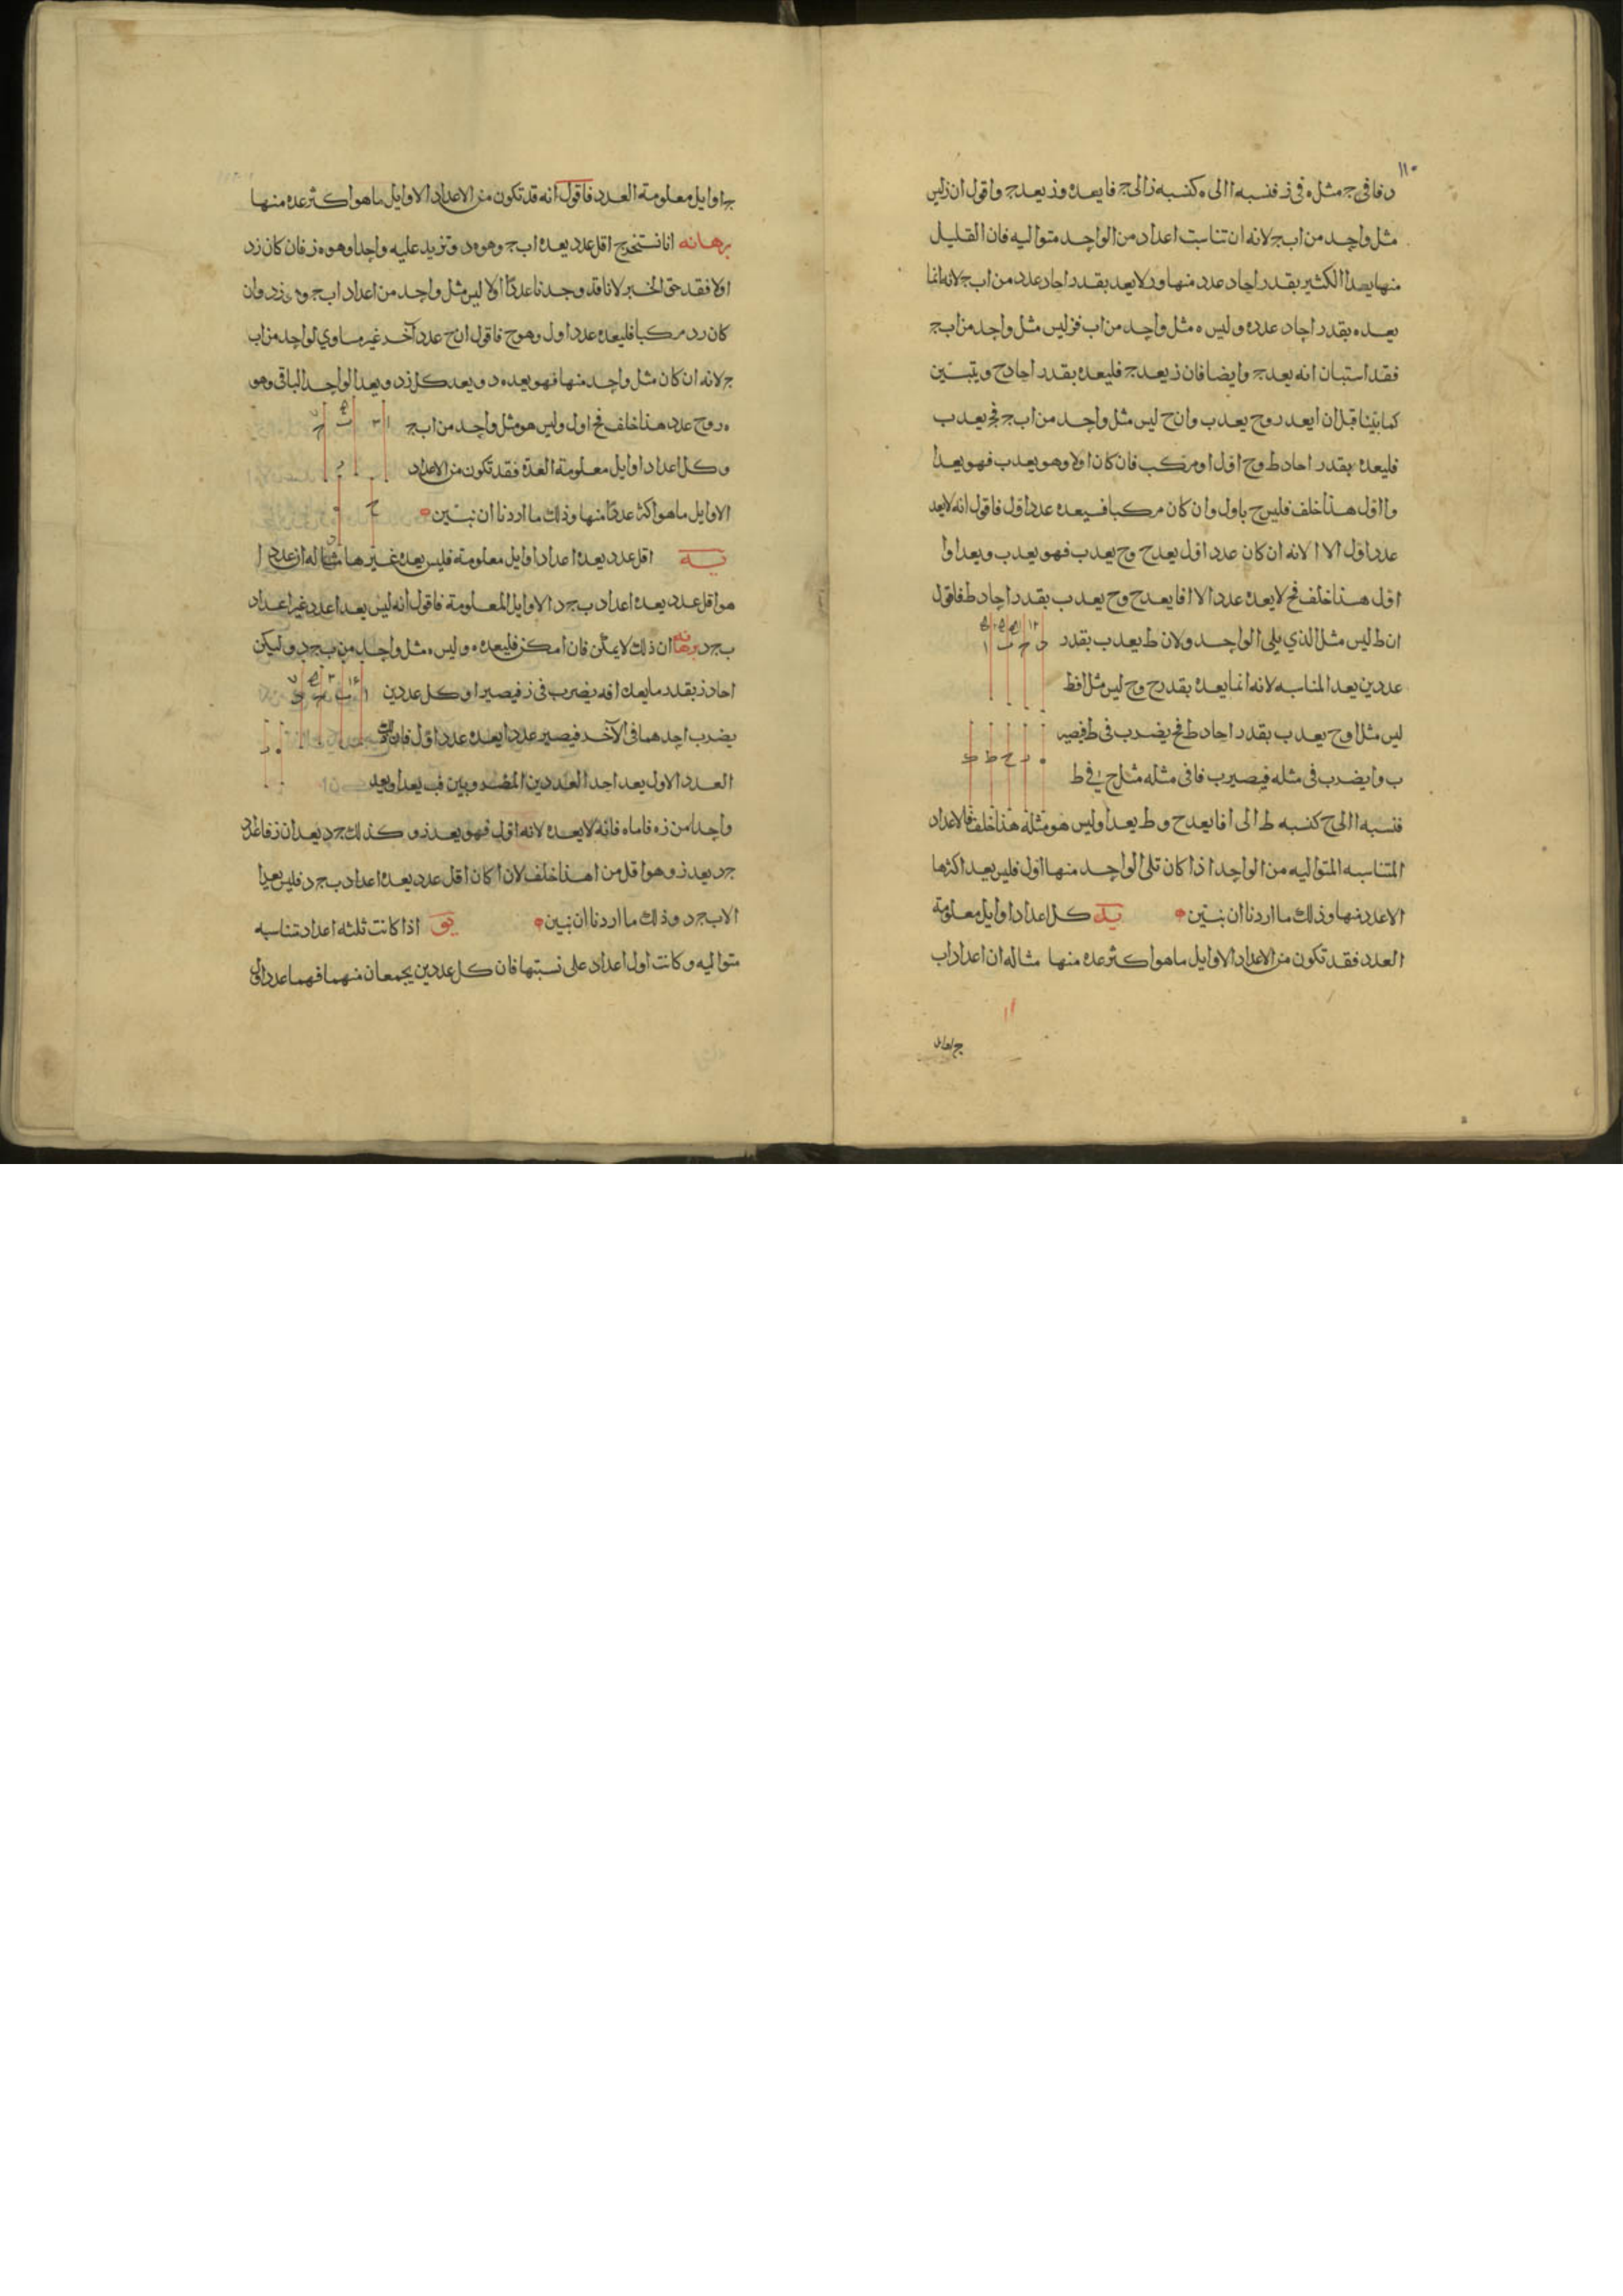 ١١٠
د فا فى ج مثل ه فى ز فنسبه ا الى ه كنسبه ز الى ج فا يعد ه وز يعد ج واقول ان ز ليس
مثل واحد من اب ج لانه ان تناسبت اعداد من الواحد متواليه فان القليل
منها يعد الكثير بقدر احاد عدد منها ود لا يعد بقدر احاد عدد من اب ج لانه انما
يعده بقدر احاد عدد ه وليس ه مثل واحد من اب فز ليس مثل واحد من اب ج
فقد استبان انه يعد ج وايضا فان ز يعد ج فليعده بقدر احاد ح ويتبين
كما بينا قبل ان ا يعد ز وح يعد ب وان ح ليس مثل واحد من اب ج فح يعد ب
فليعده بقدر احاد ط وح اول او مركب فان كان اولا وهو يعد ب فهو يعد ا
وا اول هذا خلف فليس ح باول وان كان مركبا فيعده عدد اول فاقول انه لا يعد
عدد اول الا ا لانه ان كان عدد اول يعد ح وح يعد ب فهو يعد ب ويعد ا وا
اول هذا خلف فح لا يعده عدد الا ا فا يعد ح وح يعد ب بقدر احاد ط فاقول
ان ط ليس مثل الذي يلى الواحد ولان ط يعد ب بقدر
عددين يعد المناسبه لانه انما يعده بقدر ح وح ليس مثل ا فط
ليس مثل ا وح يعد ب بقدر احاد ط فح يضرب فى ط فيصير
ب وا يضرب فى مثله فيصير ب فا فى مثله مثل ح فى ط
فنسبه ا الى ح كنسبه ط الى ا فا يعد ح وط يعد ا وليس هو مثله هذا خلف فالاعداد
المتناسبه المتواليه من الواحد اذا كان تلى الواحد منها اول فليس يعد اكثرها
الا عدد منها وذلك ما اردنا ان نبين يد كل اعداد اوايل معلومة
العدد فقد تكون من الاعداد الاوايل ما هو اكثر عده منها مثاله ان اعداد اب
ج اوايل
ج اوايل معلومة العدد فاقول انه قد تكون من الاعداد الاوايل ما هو اكثر عده منها
برهانه انا نستخرج اقل عدد يعده اب ج وهو ه د ونزيد عليه واحدا وهو ه ز فان كان زد
اولا فقد حق الخبر لانا قد وجدنا عددًا اولا ليس مثل واحد من اعداد اب ج وهو زد وان
كان زد مركبا فليعده عدد اول وهو ح فاقول ان ح عدد آخر غير مساوي لواحد من اب
ج لانه ان كان مثل واحد منها فهو يعد ه د ويعد كل زد ويعد الواحد الباقى وهو
ه ز وح عدد هذا خلف فح اول وليس هو مثل واحد من اب ج
وكل اعداد اوايل معلومة العدة فقد تكون من الاعداد
الاوايل ما هو اكثر عددًا منها وذلك ما اردنا ان نبين
يه اقل عدد يعده اعداد اوايل معلومة فليس يعده غيرها مثاله ان عدد ا
هو اقل عدد يعده اعداد ب ج د الاوايل المعلومة فاقول انه ليس يعد ا عدد غير اعداد
ب ج د برهانه ان ذلك لا يمكن فان امكن فليعده ه وليس ه مثل واحد من ب ج د وليكن
احاد ز بقدر ما يعد ا فه يضرب فى ز فيصير ا وكل عددين
يضرب احدهما فى الآخر فيصير عددا يعده عدد اول فان ذلك
العدد الاول يعد احد العددين المضروبين فب يعد ا ويعد
واحدا من زه فاما ه فانه لا يعده لانه اول فهو يعد ز وكذلك ج د يعدان ز فاعداد
ج د يعد ز وهو اقل من ا هذا خلف لان ا كان اقل عدد يعده اعداد ب ج د فليس يعد ا
الا ب ج د وذلك ما اردنا ان نبين يو اذا كانت ثلثه اعداد متناسبه
متواليه وكانت اول اعداد على نسبتها فان كل عددين يجمعان منهما فهما عدد اول